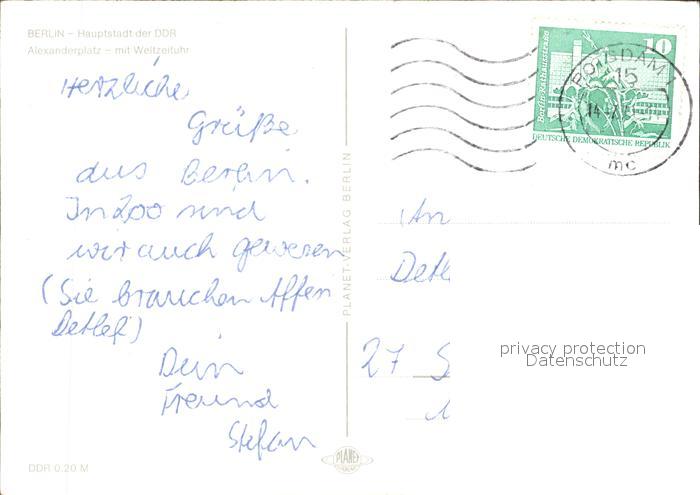 BERLIN – Hauptstadt der DDR
Alexanderplatz – mit Weltzeituhr
Herzliche
Grüße
aus Berlin.
In Zoo sind
wir auch gewesen
(Sie brauchen Affen
Detlef)
Dein
Freund
Stefan
DDR 0,20 M
PLANET-VERLAG BERLIN
PLANET
10
Berlin, Rathausstraße
DEUTSCHE DEMOKRATISCHE REPUBLIK
POTSDAM 1
15
mc
An
Detl
27 S
privacy protection
Datenschutz